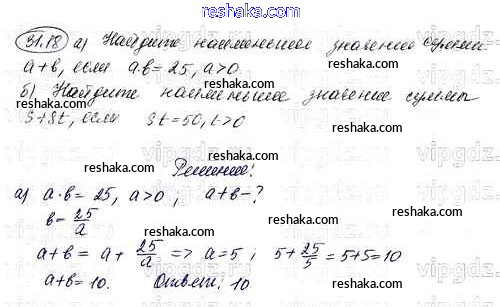 reshaka.com
31.18 а) Найдите наименьшее значение суммы
a+b, если a·b=25, a>0.
reshaka.com
б) Найдите наименьшее значение суммы
s+8t, если st=50, t>0
reshaka.com
vipgdz.
Решение:
reshaka.com
а) a·b=25, a>0; a+b-?
b=25/a
reshaka.com
a+b=a+25/a => a=5; 5+25/5=5+5=10
a+b=10. Ответ: 10
reshaka.com